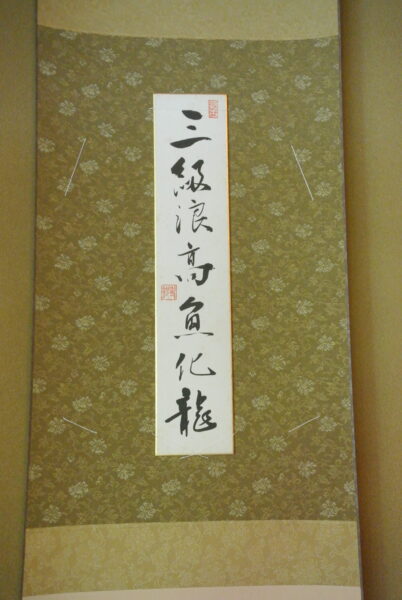 三級浪高魚化龍